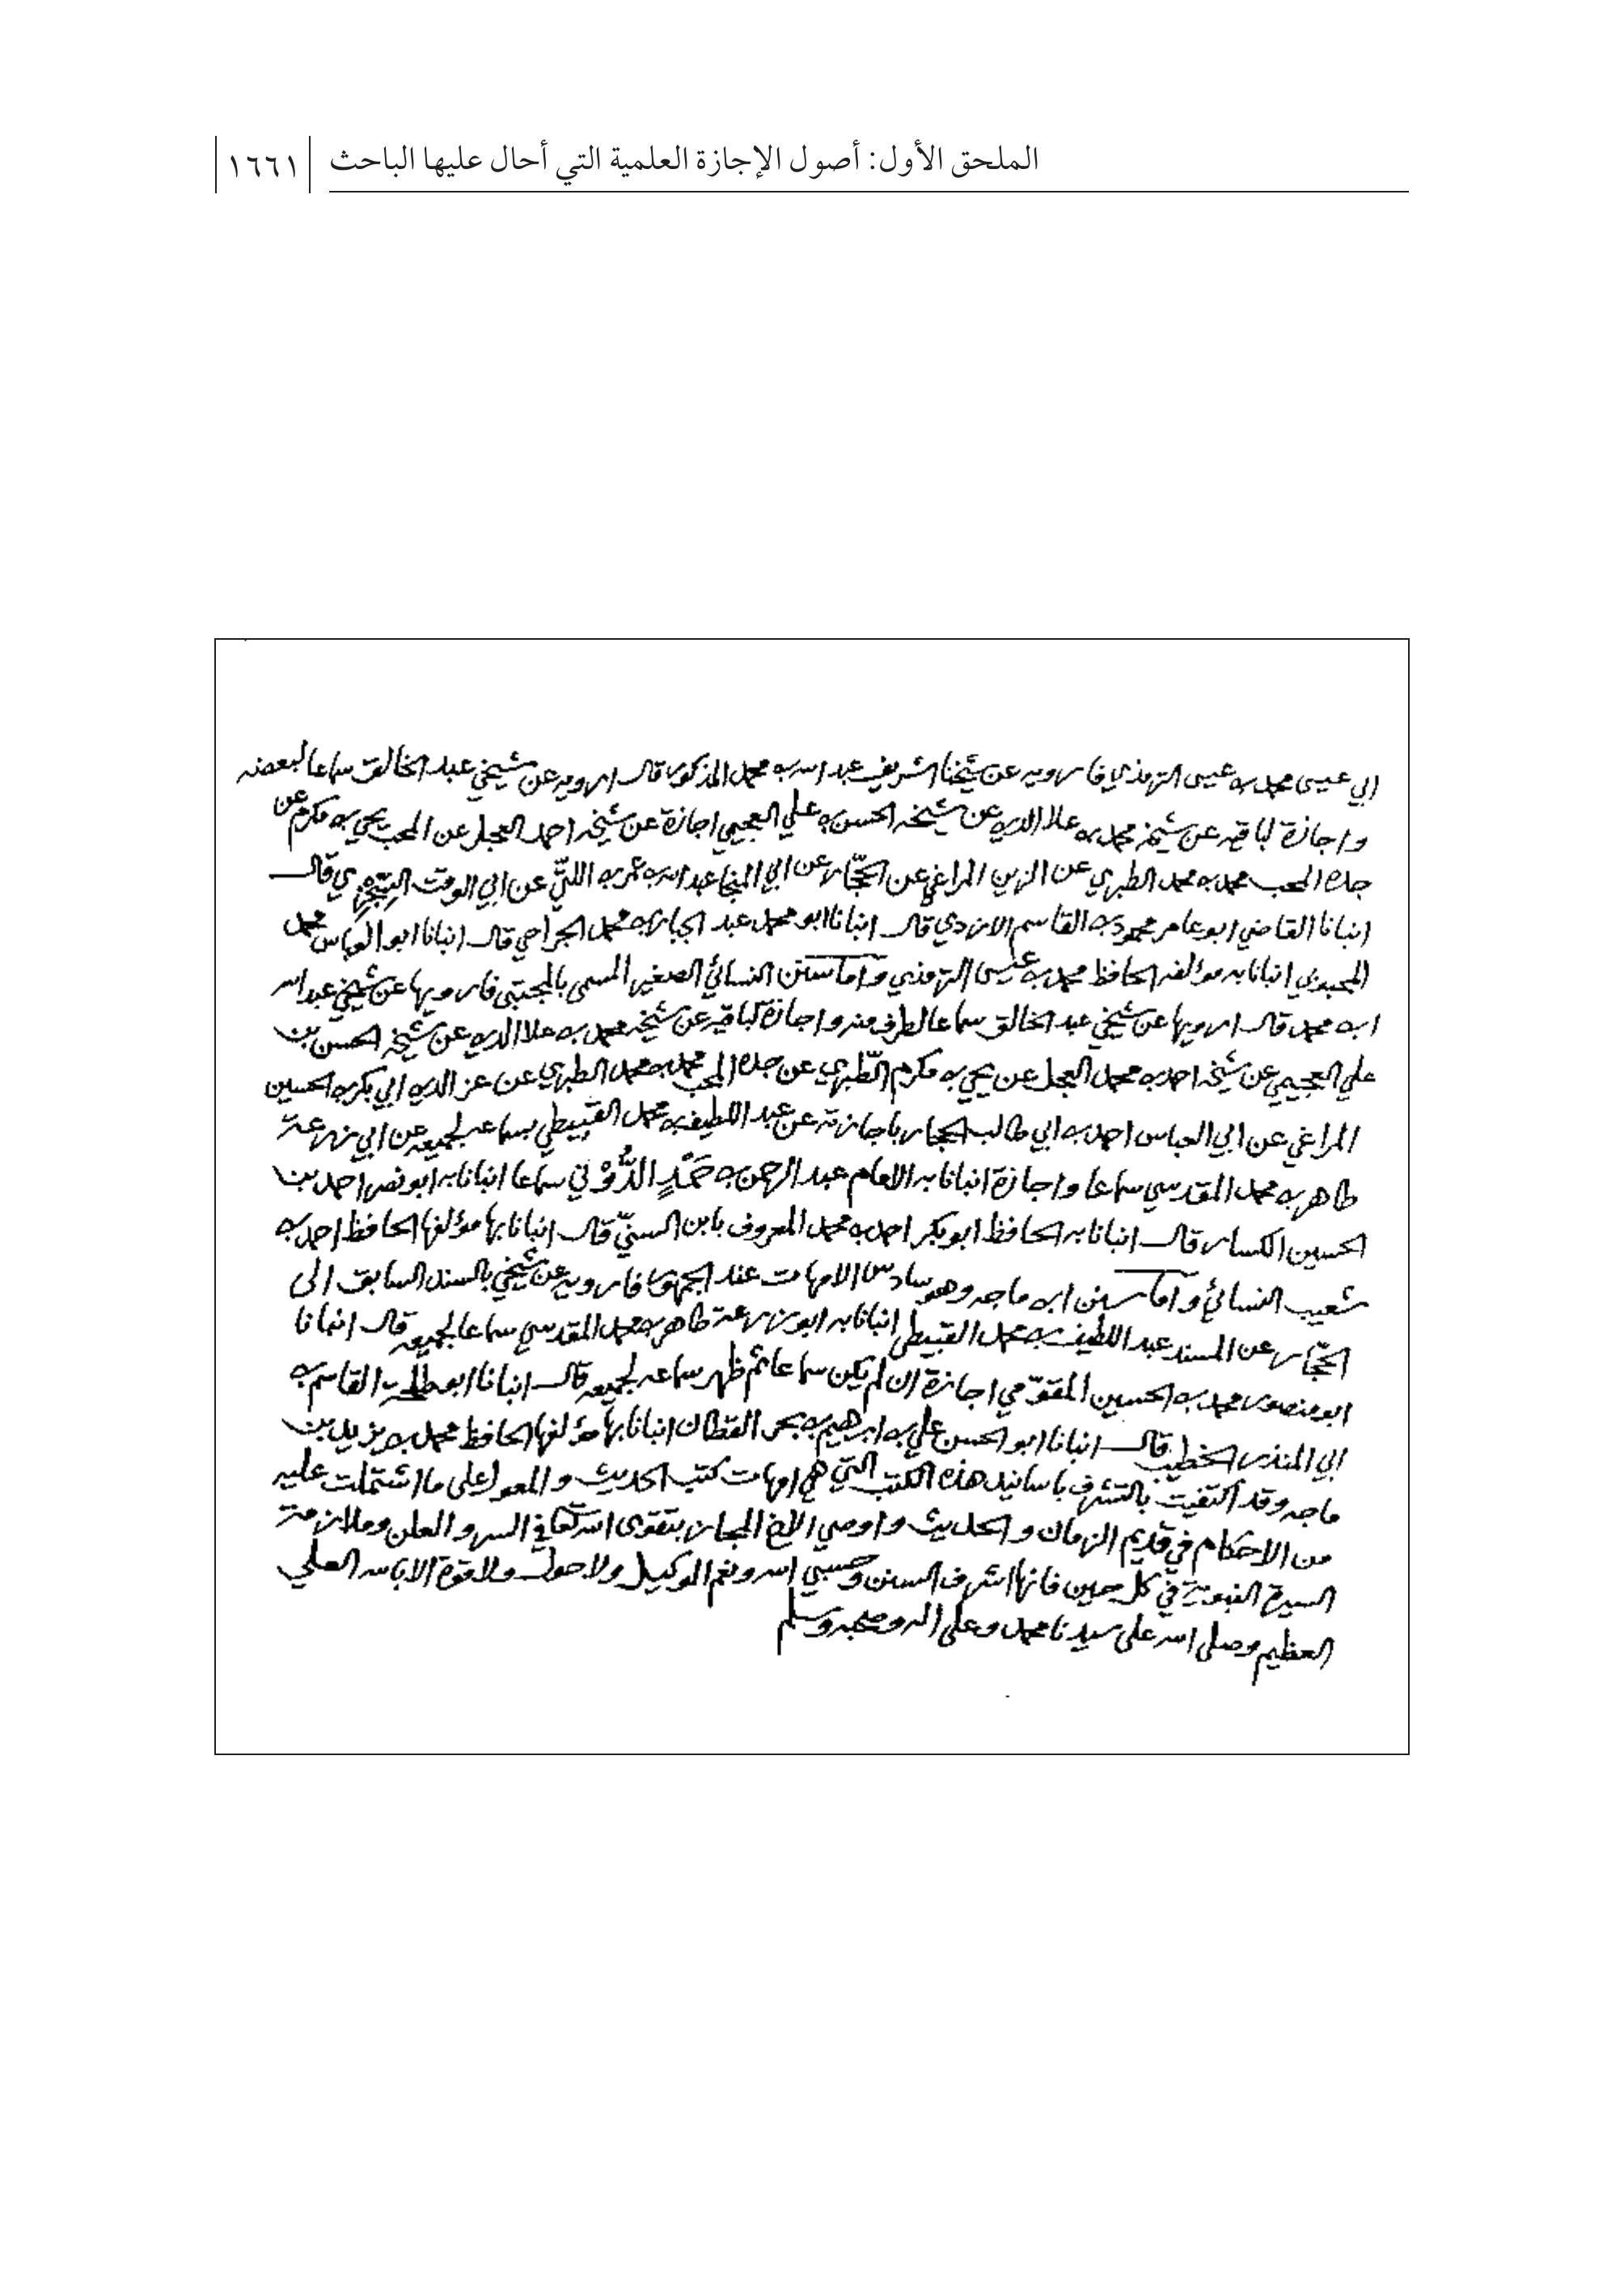 الملحق الأول: أصول الإجازة العلمية التي أحال عليها الباحث ١٦٦١
ابي عيسى محمد بن عيسى الترمذي فارويه عن شيخنا الشريف عبد الله بن محمد المذكور قال ارويه عن شيخي عبد الخالق سماعا لبعضه
واجازة لباقيه عن شيخه محمد بن علا الدين عن شيخه الحسن بن علي العجيمي اجازة عن شيخه احمد العجل عن المحب يحيى بن مكرم عن
جده المحب محمد بن محمد الطبري عن الزين المراغي عن الحجّار عن ابي المنجا عبد الله بن عمر بن اللتيّ عن ابي الوقت السجزي قال
انبانا القاضي ابو عامر محمود بن القاسم الازدي قال انبانا ابو محمد عبد الجبار بن محمد الجراحي قال انبانا ابو العباس محمد
المحبوبي انبانا به مؤلفه الحافظ محمد بن عيسى الترمذي واما سنن النسائي الصغير المسمى بالمجتبى فارويها عن شيخي عبد الله
ابن محمد قال ارويها عن شيخي عبد الخالق سماعا لطرف منه واجازة لباقيه عن شيخه محمد بن علا الدين عن شيخه الحسن بن
علي العجيمي عن شيخه احمد بن محمد العجل عن يحيى بن مكرم الطّبري عن جده المحب محمد بن محمد الطبري عن عز الدين ابي بكر بن الحسين
المراغي عن ابي العباس احمد بن ابي طالب الحجار باجازته عن عبد اللطيف بن محمد القبيطي بسماعه لجميعه عن ابي زرعة
طاهر بن محمد المقدسي سماعا واجازة انبانا به الامام عبد الرحمن بن حَمْدٍ الدُّوْني سماعا انبانا به ابو نصر احمد بن
الحسين الكسار قال انبانا به الحافظ ابو بكر احمد بن محمد المعروف بابن السنيّ قال انبانا بها مؤلفها الحافظ احمد بن
شعيب النسائي واما سنن ابن ماجه وهو سادس الامهات عند الجمهور فارويه عن شيخي بالسند السابق الى
الحجّار عن المسند عبد اللطيف بن محمد القبيطي انبانا به ابو زرعة طاهر بن محمد المقدسي سماعا لجميعه قال انبانا
ابو منصور محمد بن الحسين المقوّمي اجازة ان لم يكن سماعا ثم ظهر سماعه لجميعه قال انبانا ابو طلحة القاسم بن
ابي المنذر الخطيب قال انبانا ابو الحسن علي بن ابرهيم بن بحر القطان انبانا بها مؤلفها الحافظ محمد بن يزيد بن
ماجه وقد اكتفيت بالتشرف باسانيد هذه الكتب التي هي امهات كتب الحديث والمعول على ما اشتملت عليه
من الاحكام في قديم الزمان والحديث واوصي الاخ المجاز بتقوى الله تعالى في السر والعلن وملازمة
السيرة النبوية في كل حين فانها اشرف السنن وحسبي الله ونعم الوكيل ولا حول ولا قوة الا بالله العلي
العظيم وصلى الله على سيدنا محمد وعلى اله وصحبه وسلم